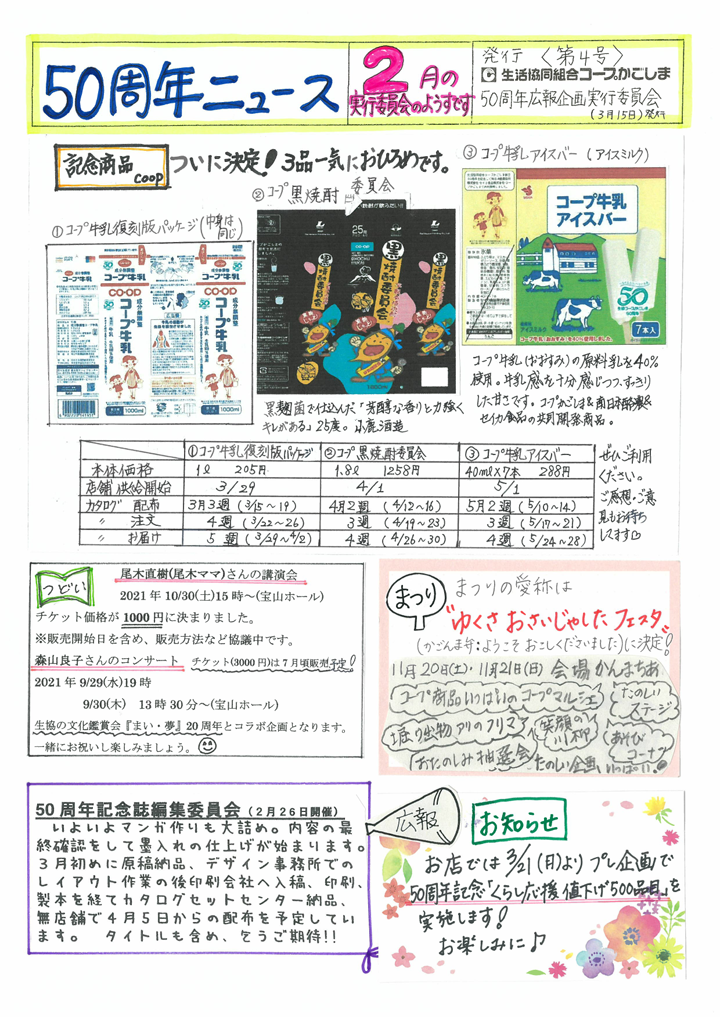 50周年ニュース
2月の
実行委員会のようすです
発行〈第4号〉
生活協同組合コープかごしま
50周年広報企画実行委員会
(3月15日)発行
記念商品
coop
ついに決定! 3品一気におひろめです。
①コープ牛乳復刻版パッケージ(中身は同じ)
②コープ黒焼酎委員会
③コープ牛乳アイスバー(アイスミルク)
成分無調整
コープ牛乳
CO・OP
コープ牛乳
1000ml
25%
黒焼酎委員会
1800ml
コープ牛乳
アイスバー
50
7本入
アイスミルク
コープ牛乳(おおすみ)の原料乳を40%
使用。牛乳感を十分感じつつ、すっきり
した甘さです。コープかごしま&南日本酪農&
セイカ食品の共同開発商品。
黒麹菌で仕込んだ「芳醇な香りと力強く
キレがある」25度。小鹿酒造
①コープ牛乳復刻版パッケージ ②コープ黒焼酎委員会 ③コープ牛乳アイスバー
本体価格 1ℓ 205円 1.8ℓ 1258円 40ml×7本 288円
店舗供給開始 3/29 4/1 5/1
カタログ 配布 3月3週(3/15~19) 4月2週(4/12~16) 5月2週(5/10~14)
〃 注文 4週(3/22~26) 3週(4/19~23) 3週(5/17~21)
〃 お届け 5週(3/29~4/2) 4週(4/26~30) 4週(5/24~28)
ぜひご利用
ください。
ご感想・ご意
見もお待ち
します
つどい
尾木直樹(尾木ママ)さんの講演会
2021年10/30(土)15時~(宝山ホール)
チケット価格が1000円に決まりました。
※販売開始日を含め、販売方法など協議中です。
森山良子さんのコンサート チケット(3000円)は7月頃販売予定!
2021 9/29(水)19時
9/30(木) 13時30分~(宝山ホール)
生協の文化鑑賞会『まい・夢』20周年とコラボ企画となります。
一緒にお祝いし楽しみましょう。
まつり
まつりの愛称は
"ゆくさ おさいじゃした フェスタ"
(かごんま弁:ようこそ おこしくださいました)に決定!
11月20日(土)・11月21日(日) 会場 かんまちあ
コープ商品いっぱいのコープマルシェ
たのしいステージ
掘り出物アリのフリマ
笑顔の川柳
あそびコーナー
おたのしみ抽選会
たのしい企画いっぱい!
50周年記念誌編集委員会(2月26日開催)
いよいよマンガ作りも大詰め。内容の最
終確認をして墨入れの仕上げが始まります。
3月初めに原稿納品、デザイン事務所での
レイアウト作業の後印刷会社へ入稿、印刷、
製本を経てカタログセットセンター納品、
無店舗で4月5日からの配布を予定してい
ます。 タイトルも含め、乞うご期待!!
広報
お知らせ
お店では3/21(月)より プレ企画で
50周年記念「くらし応援 値下げ500品目」を
実施します!
お楽しみに♪